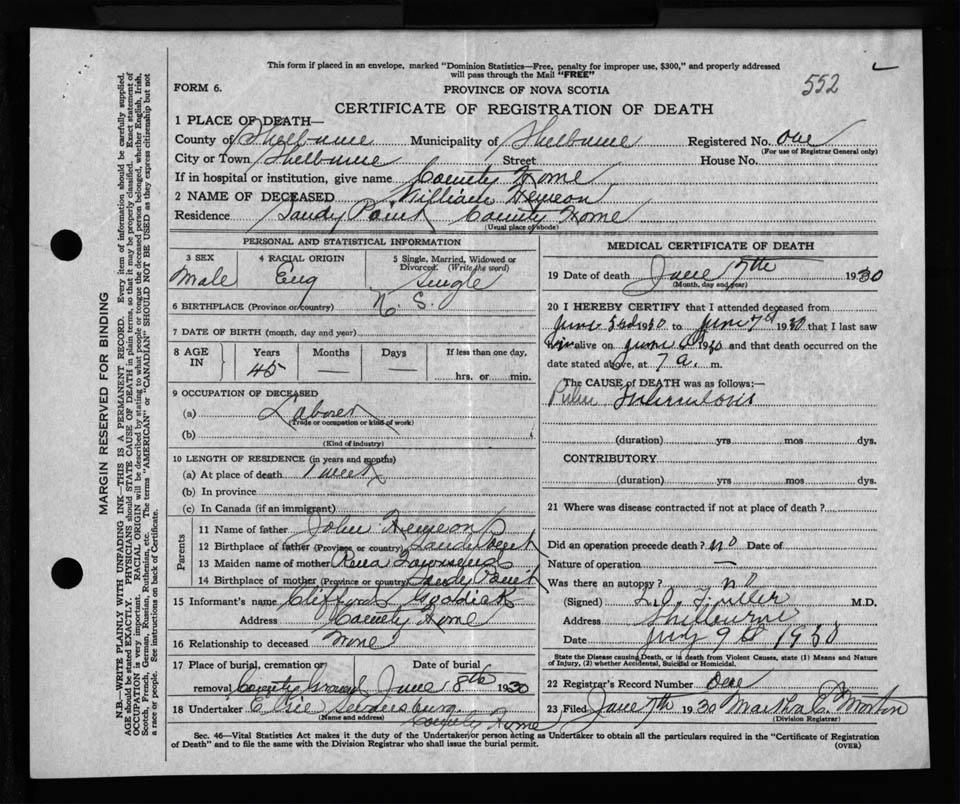 This form if placed in an envelope, marked "Dominion Statistics—Free, penalty for improper use, $300," and properly addressed
will pass through the Mail "FREE"
552
FORM 6.
PROVINCE OF NOVA SCOTIA
CERTIFICATE OF REGISTRATION OF DEATH
1 PLACE OF DEATH—
County of Shelburne Municipality of Shelburne Registered No. One
(For use of Registrar General only)
City or Town Shelburne Street House No.
If in hospital or institution, give name County Home
2 NAME OF DECEASED William Hemeon
Residence Sandy Point County Home
(Usual place of abode)
PERSONAL AND STATISTICAL INFORMATION
3 SEX
Male
4 RACIAL ORIGIN
Eng
5 Single, Married, Widowed or
Divorced (Write the word)
Single
6 BIRTHPLACE (Province or country) N. S.
7 DATE OF BIRTH (month, day and year)
8 AGE IN
Years Months Days If less than one day,
45 — — hrs. or min.
9 OCCUPATION OF DECEASED
(a) Laborer
(Trade or occupation or kind of work)
(b)
(Kind of industry)
10 LENGTH OF RESIDENCE (in years and months)
(a) At place of death 1 week
(b) In province
(c) In Canada (if an immigrant)
Parents
11 Name of father John Hemeon
12 Birthplace of father (Province or country) Sandy Point
13 Maiden name of mother Rena
14 Birthplace of mother (Province or country) Sandy Point
15 Informant's name Clifford Goldick
Address County Home
16 Relationship to deceased None
17 Place of burial, cremation or Date of burial
removal County Ground June 8th 1930
18 Undertaker Elsie
(Name and address)
County Home
MEDICAL CERTIFICATE OF DEATH
19 Date of death June 7th 1930
(Month, day and year)
20 I HEREBY CERTIFY that I attended deceased from
June 3rd 1930 to June 7th 1930 that I last saw
him alive on June 1930 and that death occurred on the
date stated above, at 7 a. m.
The CAUSE of DEATH was as follows:—
Pulm Tuberculosis
(duration) yrs mos dys.
CONTRIBUTORY
(duration) yrs mos dys.
21 Where was disease contracted if not at place of death?
Did an operation precede death? no Date of
Nature of operation —
Was there an autopsy? no
(Signed) L.O. Fuller M.D.
Address Shelburne
Date 1930
State the Disease causing Death, or in death from Violent Causes, state (1) Means and
Nature of Injury, (2) whether Accidental, Suicidal or Homicidal.
22 Registrar's Record Number One
23 Filed June 7th 1930 Martha C. Morton
(Division Registrar)
Sec. 46—Vital Statistics Act makes it the duty of the Undertaker or person acting as Undertaker to obtain all the particulars required in the "Certificate of Registration
of Death" and to file the same with the Division Registrar who shall issue the burial permit.
(OVER)
MARGIN RESERVED FOR BINDING
N.B.—WRITE PLAINLY WITH UNFADING INK—THIS IS A PERMANENT RECORD. Every item of information should be carefully supplied.
AGE should be stated EXACTLY. PHYSICIANS should STATE CAUSE OF DEATH in plain terms, so that it may be properly classified. Exact statement of
OCCUPATION is very important. RACIAL ORIGIN will be described by stating to what people or tongue the deceased person belonged, whether English, Irish,
Scotch, French, German, Russian, Ruthenian, etc. The terms "AMERICAN" or "CANADIAN" SHOULD NOT BE USED as they express citizenship but not
a race or people. See instructions on back of Certificate.